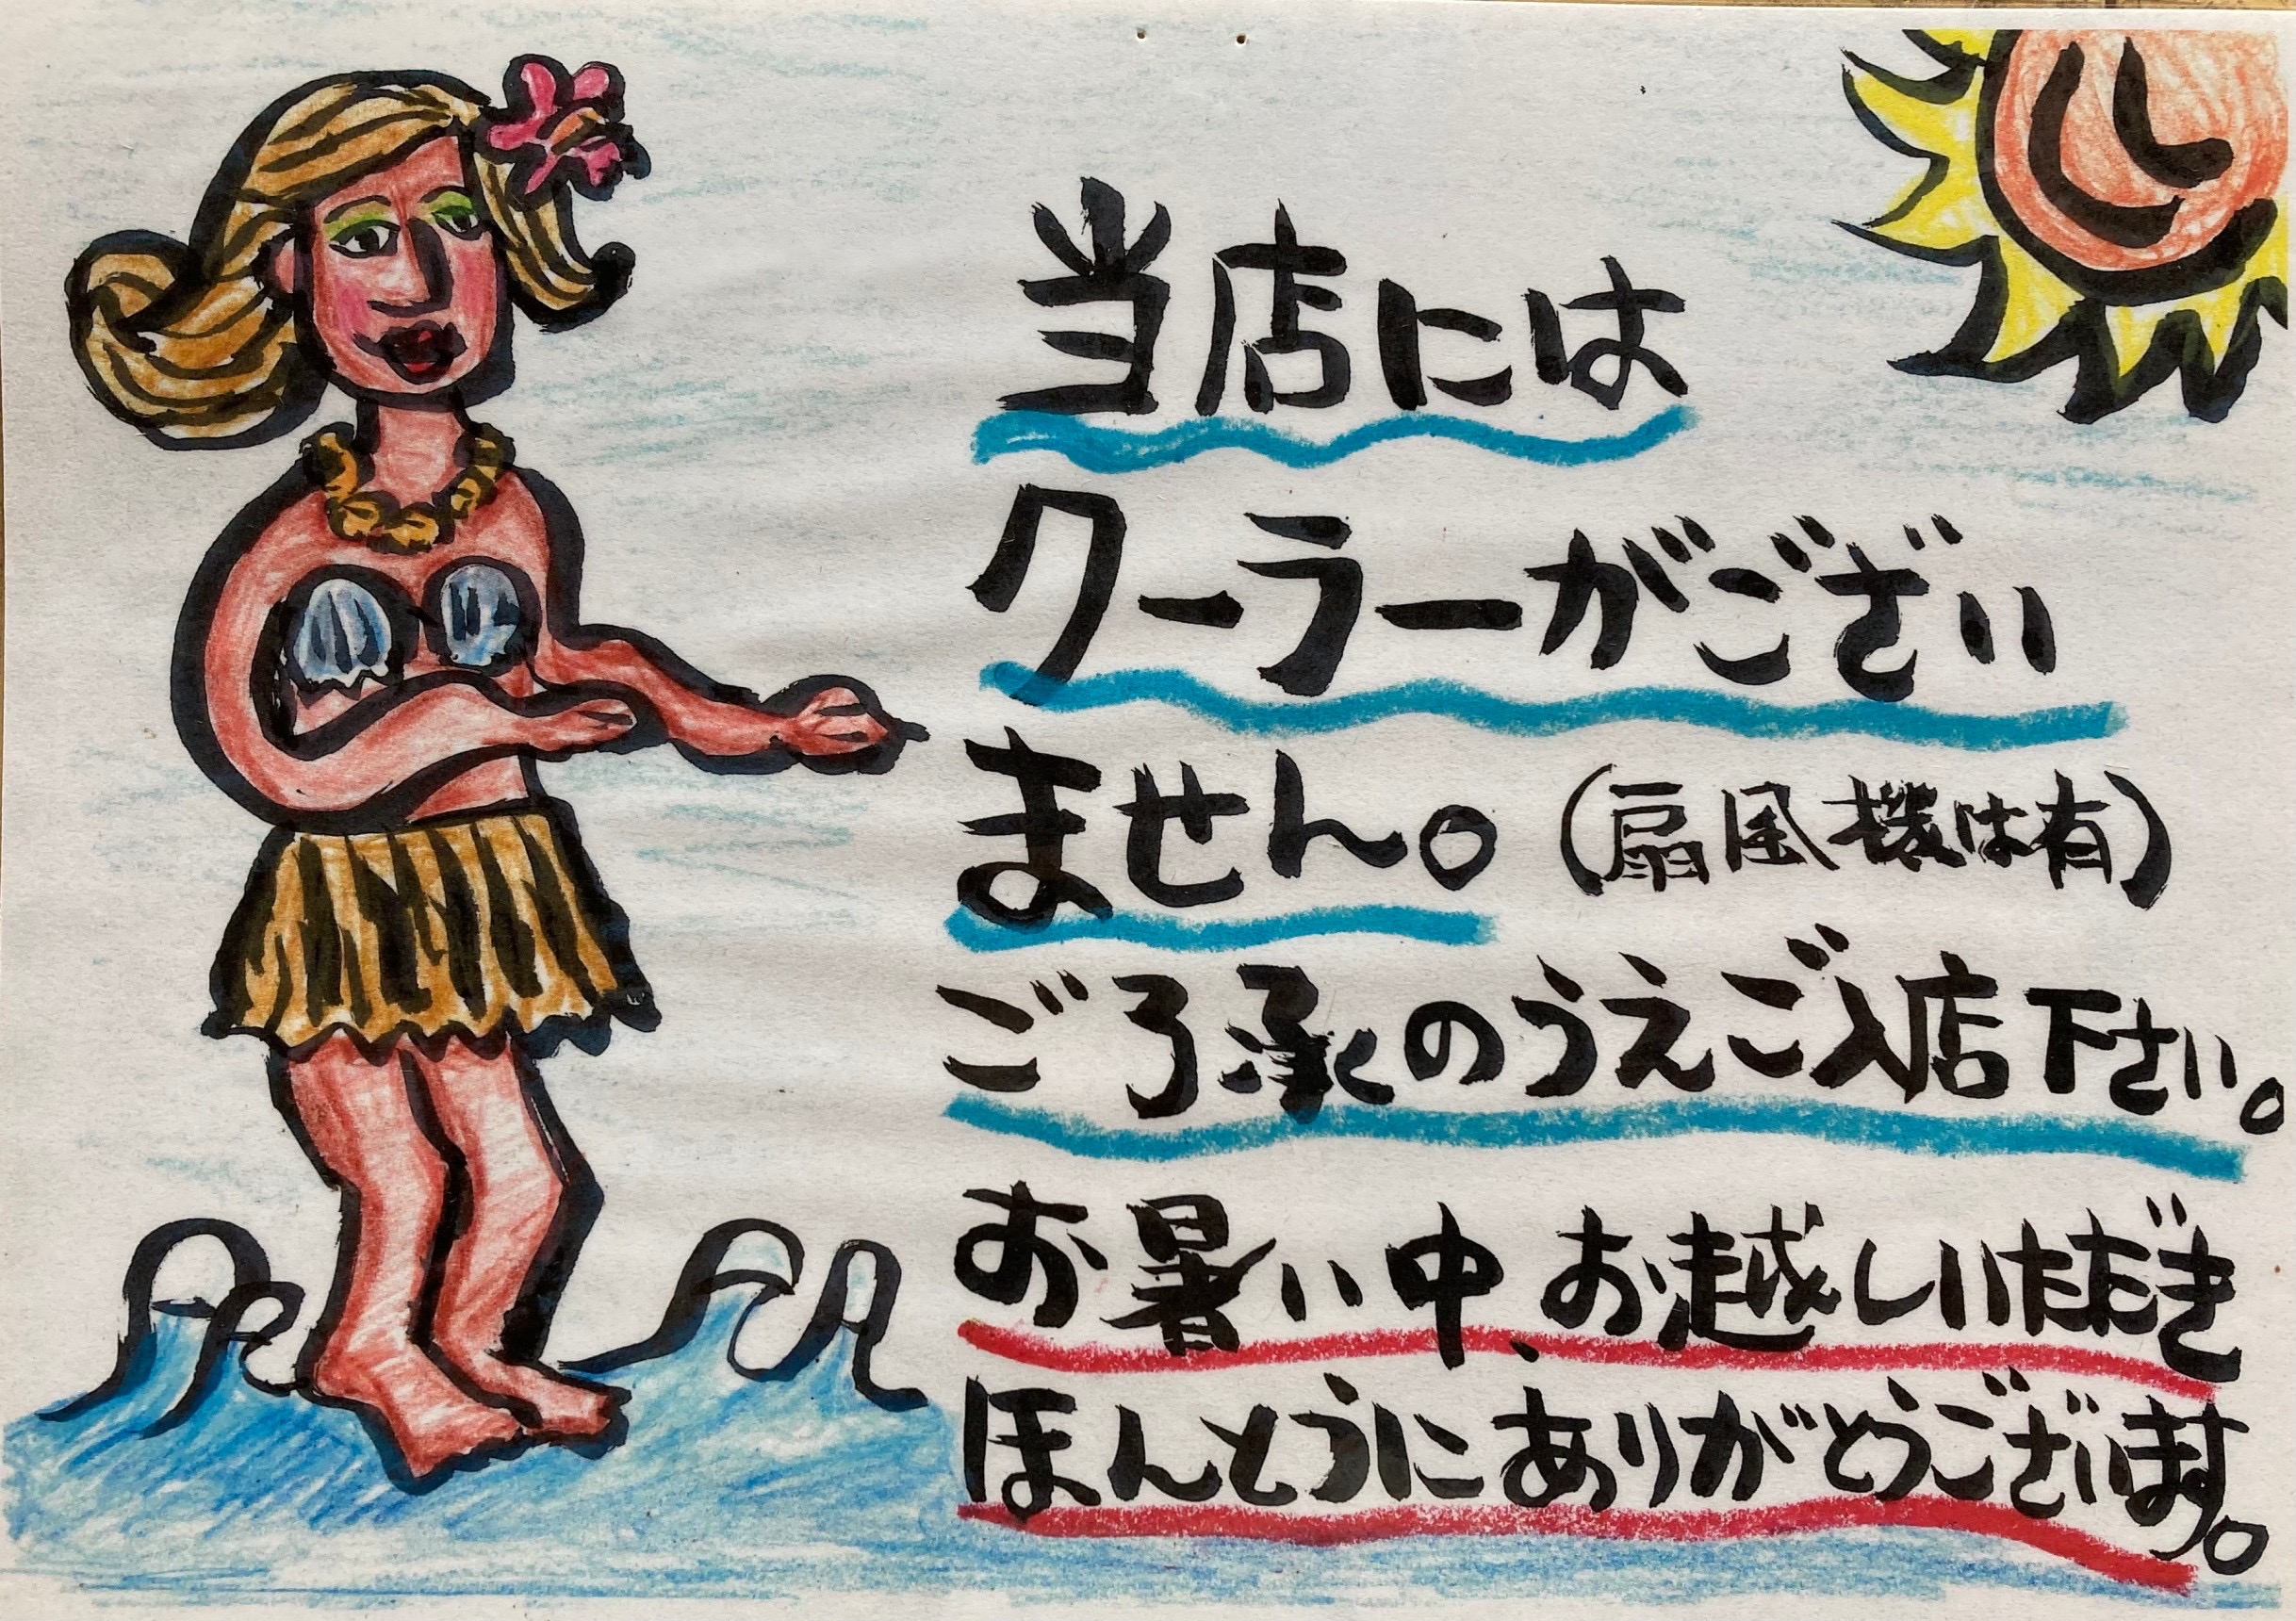 当店には
クーラーがござい
ません。(扇風機は有)
ご了承のうえご入店下さい。
お暑い中、お越しいただき
ほんとうにありがとうございます。